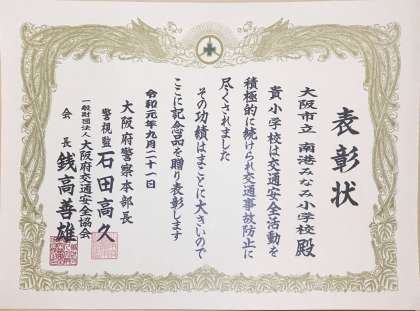 表彰状
大阪市立 南港みなみ小学校 殿
貴小学校は交通安全活動を
積極的に続けられ交通事故防止に
尽くされました
その功績はまことに大きいので
ここに記念品を贈り表彰します
令和元年九月二十一日
大阪府警察本部長
警視監 石田高久
一般財団法人 大阪府交通安全協会
会長 銭高善雄